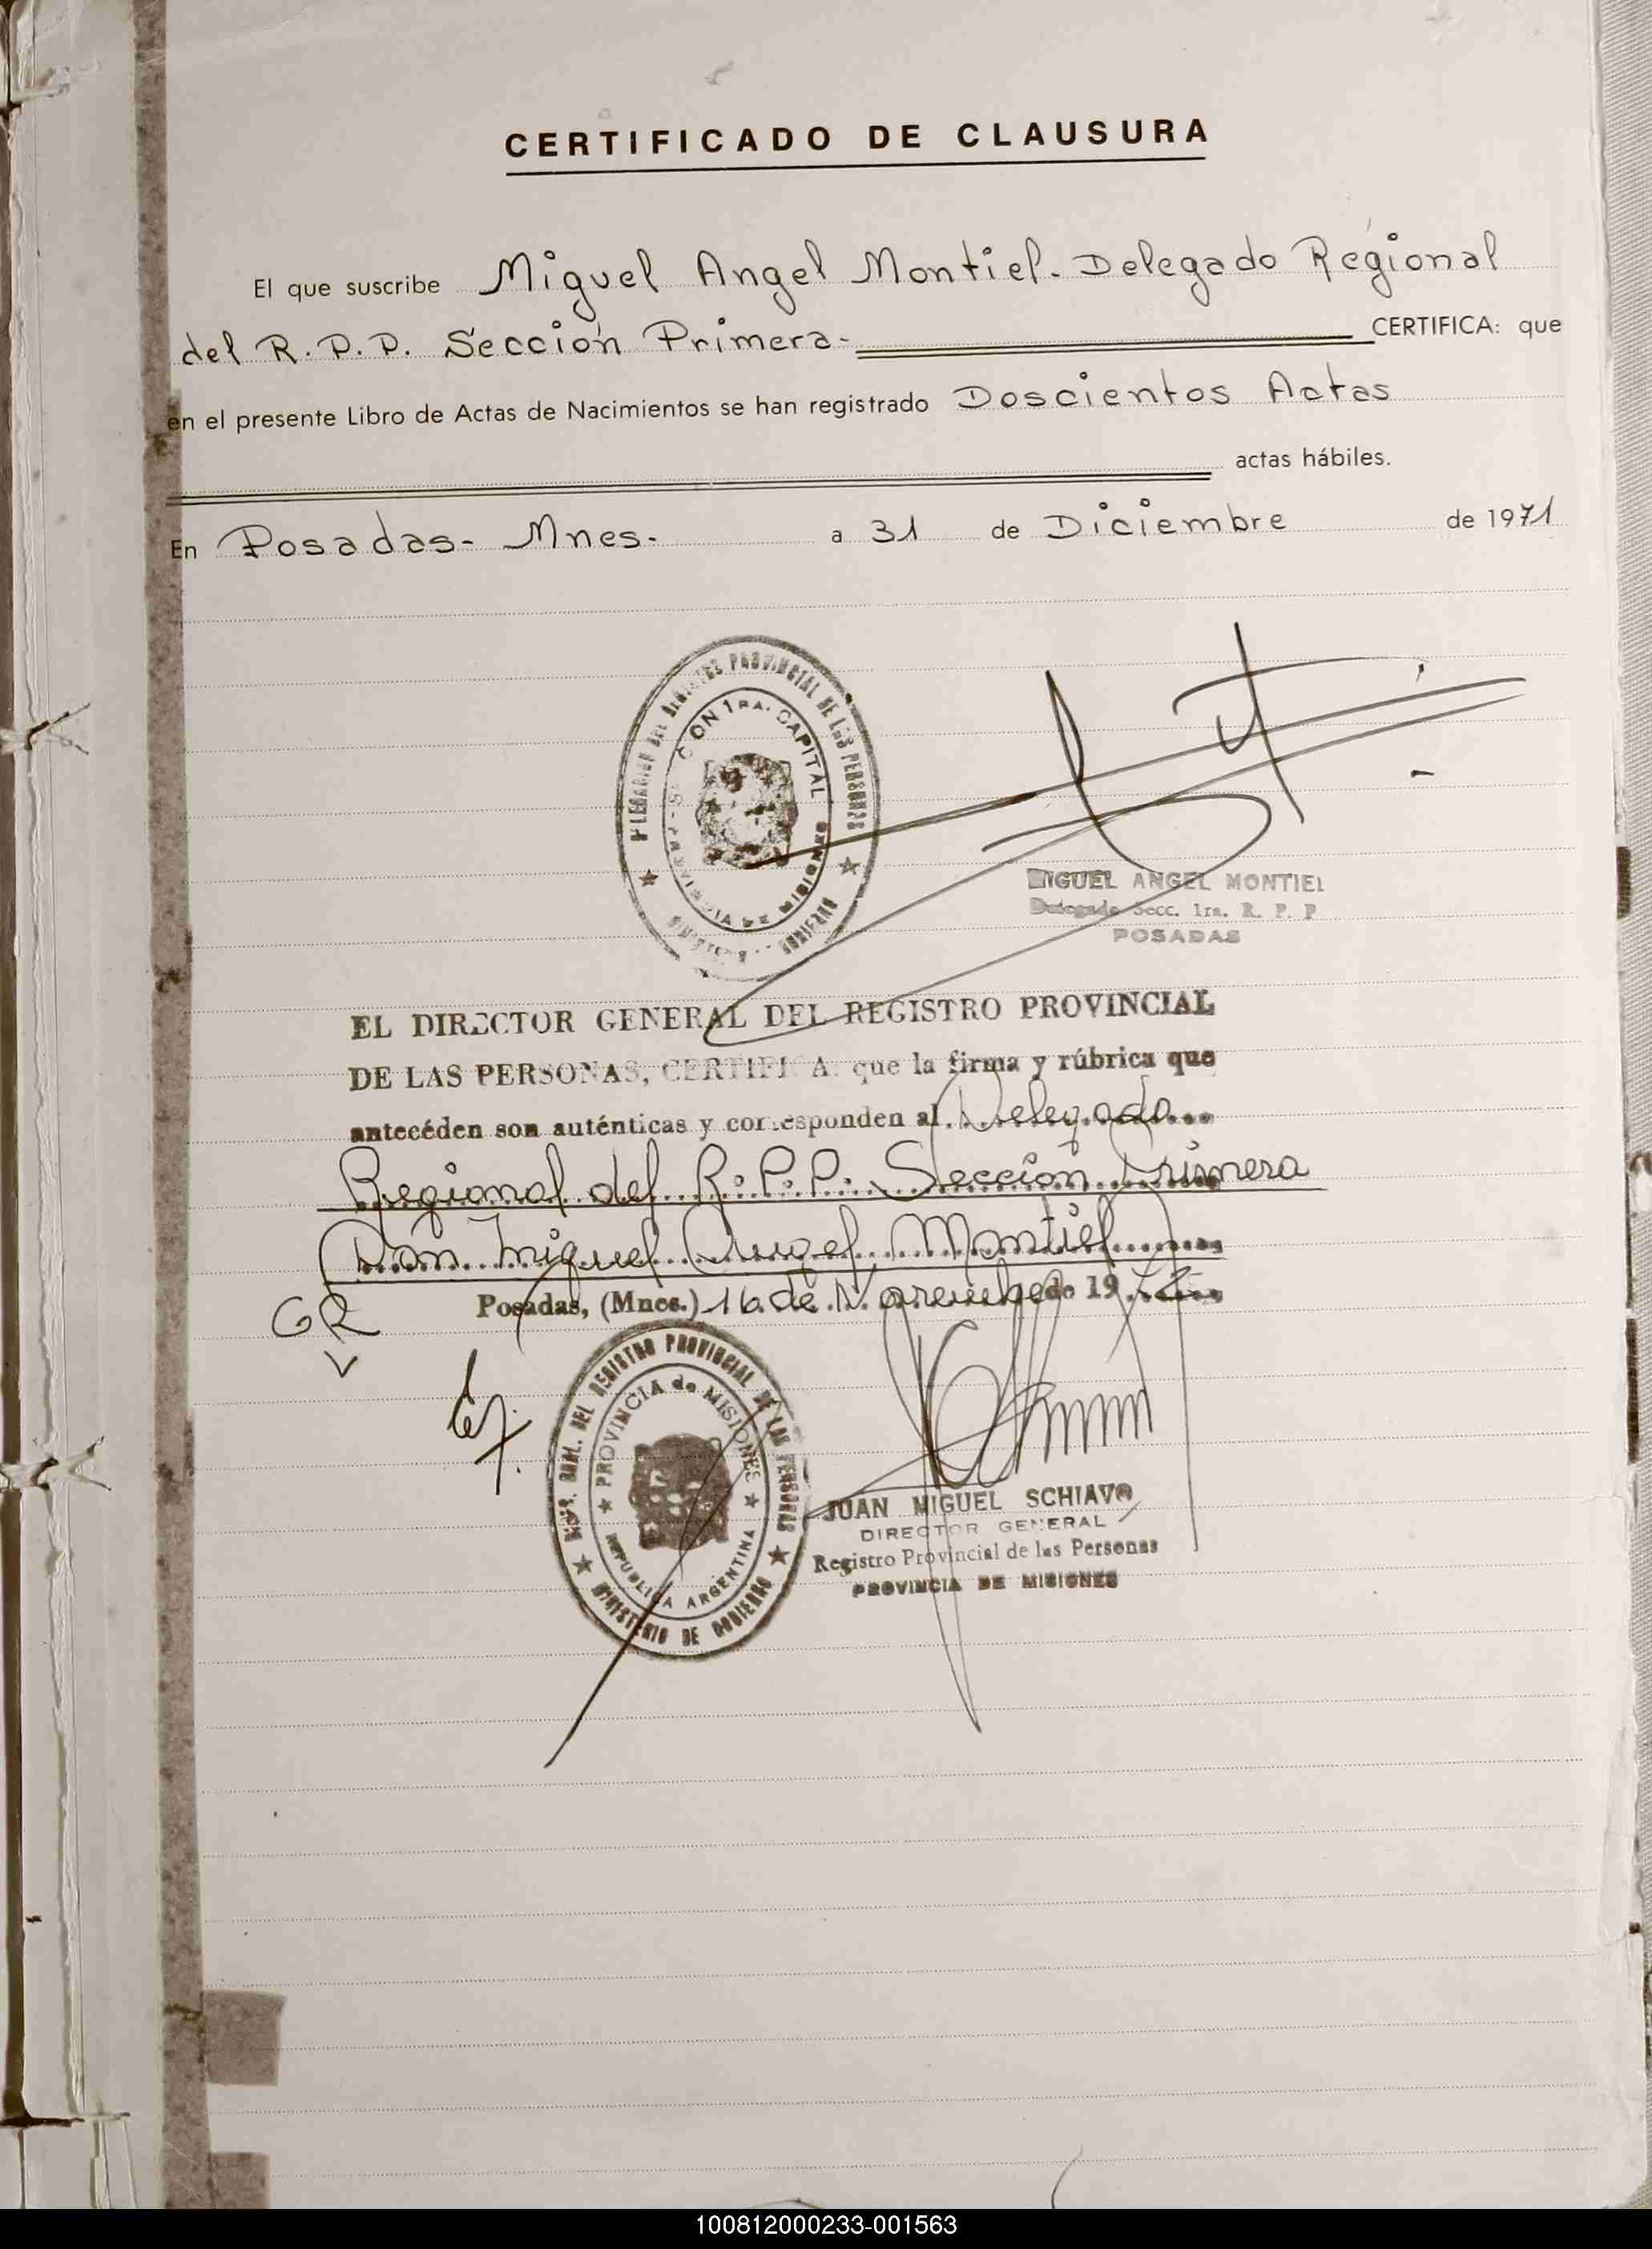 CERTIFICADO DE CLAUSURA
El que suscribe Miguel Angel Montiel- Delegado Regional
del R.P.P. Sección Primera- CERTIFICA: que
en el presente Libro de Actas de Nacimientos se han registrado Doscientos Actas
actas hábiles.
En Posadas- Mnes- a 31 de Diciembre de 1971
PROVINCIAL DE LAS PERSONAS
CION 1RA. CAPITAL
DE MISIONES
MIGUEL ANGEL MONTIEL
Delegado Secc. 1ra. R. P. P
POSADAS
EL DIRECTOR GENERAL DEL REGISTRO PROVINCIAL
DE LAS PERSONAS, CERTIFICA: que la firma y rúbrica que
antecéden son auténticas y corresponden al Delegado
Regional del R.P.P. Sección Primera
Don Miguel Angel Montiel
Posadas, (Mnes.) 16 de Noviembre de 1972
GR
DEL REGISTRO PROVINCIAL DE LAS PERSONAS
PROVINCIA de MISIONES
REPUBLICA ARGENTINA
MINISTERIO DE GOBIERNO
JUAN MIGUEL SCHIAVO
DIRECTOR GENERAL
Registro Provincial de las Personas
PROVINCIA DE MISIONES
100812000233-001563